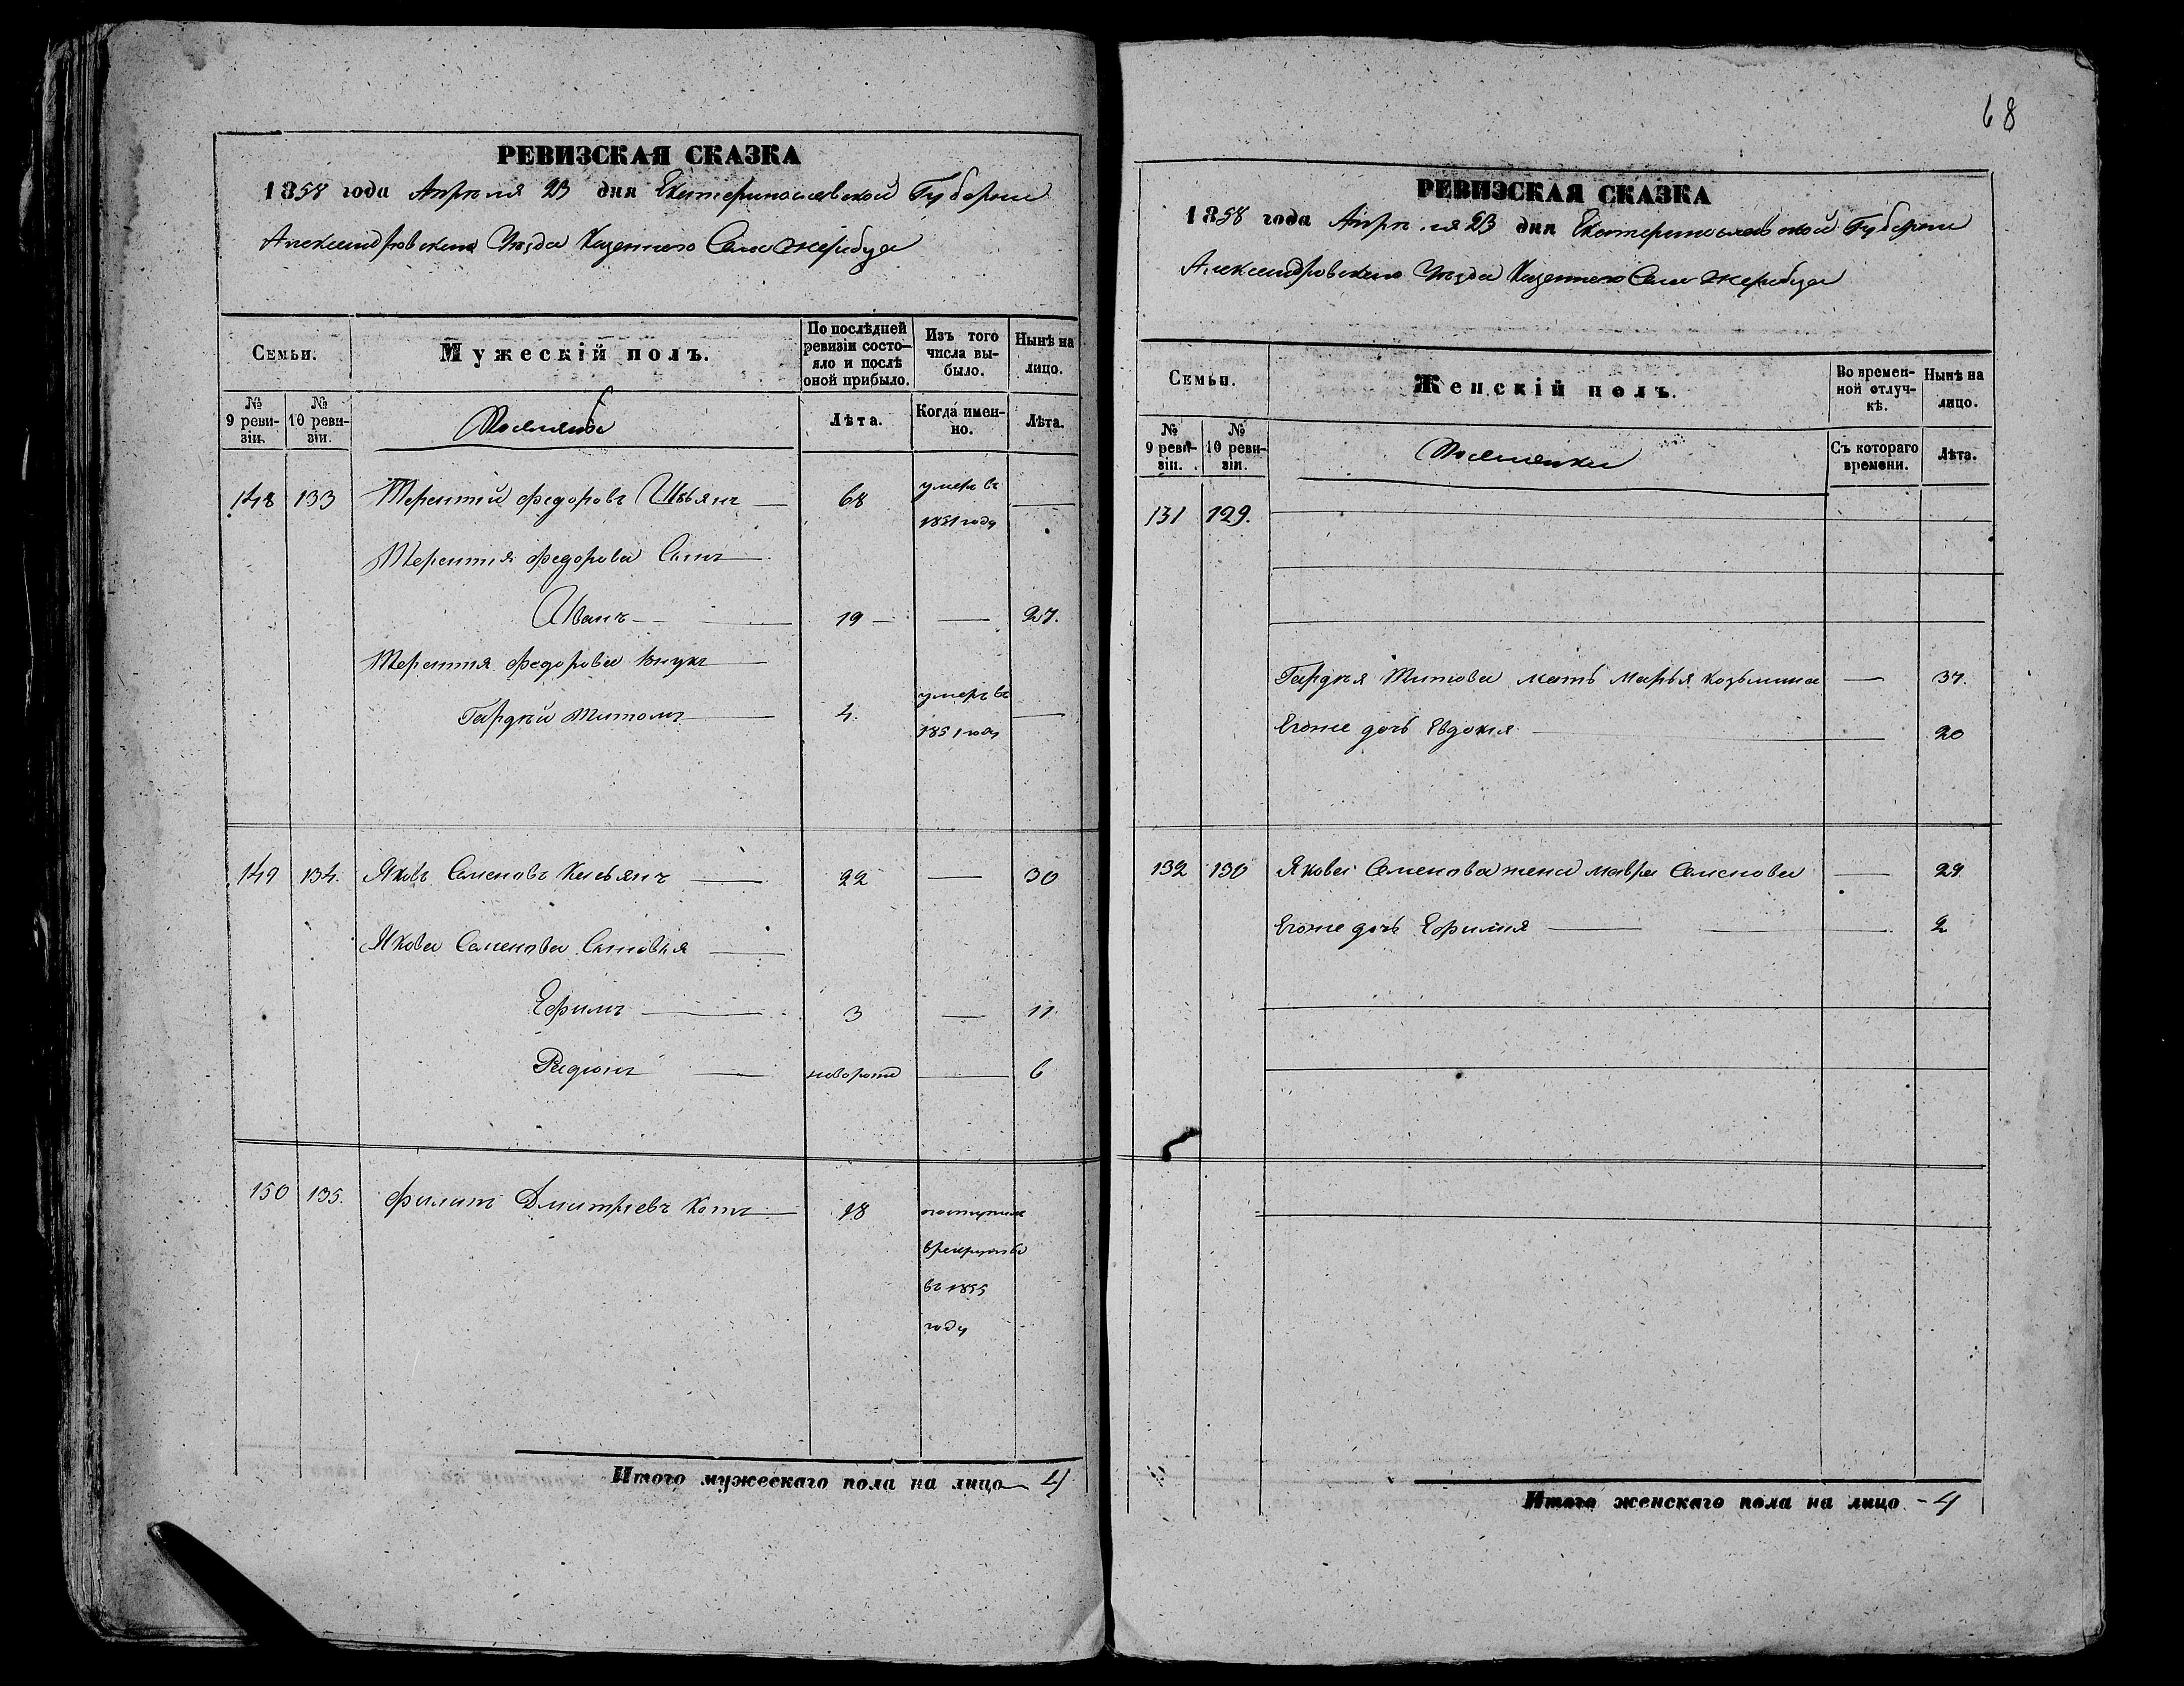 68
РЕВИЗСКАЯ СКАЗКА
1858 года Апреля 23 дня Екатеринославской Губернии
Александровского Уезда Казенного Села Жеребца
Семьи.
Мужескій полъ.
По послѣдней ревизіи состо-
яло и послѣ
оной прибыло.
Изъ того
числа вы-
было.
Нынѣ на
лицо.
№
9 реви-
зіи.
№
10 реви-
зіи.
Лѣта.
Когда имен-
но.
Лѣта.
148 133 Терентий Федоровъ 68 умеръ въ
1851 году
Терентия Федорова Сынъ
Иванъ 19 27.
Терентия Федорова внукъ
Гардѣй Титовъ 4. умеръ въ
1851 году
149 134. Яковъ Семеновъ Касьянъ 22 30
Якова Семенова Сыновья
Ефимъ 3 11
Радионъ новорож 6
150 135. Филипъ Дмитриевъ Котъ 18 поступилъ
в рекруты
въ 1855
году
Итого мужескаго пола на лицо 4
РЕВИЗСКАЯ СКАЗКА
1858 года Апреля 23 дня Екатеринославской Губернии
Александровского Уезда Казенного Села Жеребца
Семьи.
Женскій полъ.
Во времен-
ной отлуч-
кѣ.
Нынѣ на
лицо.
№
9 реви-
зіи.
№
10 реви-
зіи.
Съ котораго
времени.
Лѣта.
131 129.
Гардѣя Титова мать Марья Козьмина 37.
Егоже дочь Евдокия 20
132 130 Якова Семенова жена Мавра Семенова 29
Егоже дочь Ефимия 2
Итого женскаго пола на лицо - 4